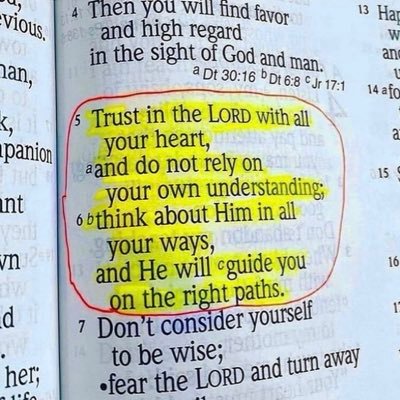 4 Then you will find favor
and high regard
in the sight of God and man.
a Dt 30:16 b Dt 6:8 c Jr 17:1
5 Trust in the LORD with all
your heart,
a and do not rely on
your own understanding;
6 b think about Him in all
your ways,
and He will c guide you
on the right paths.
7 Don't consider yourself
to be wise;
•fear the LORD and turn away
her;
13
14 a fo
15
16